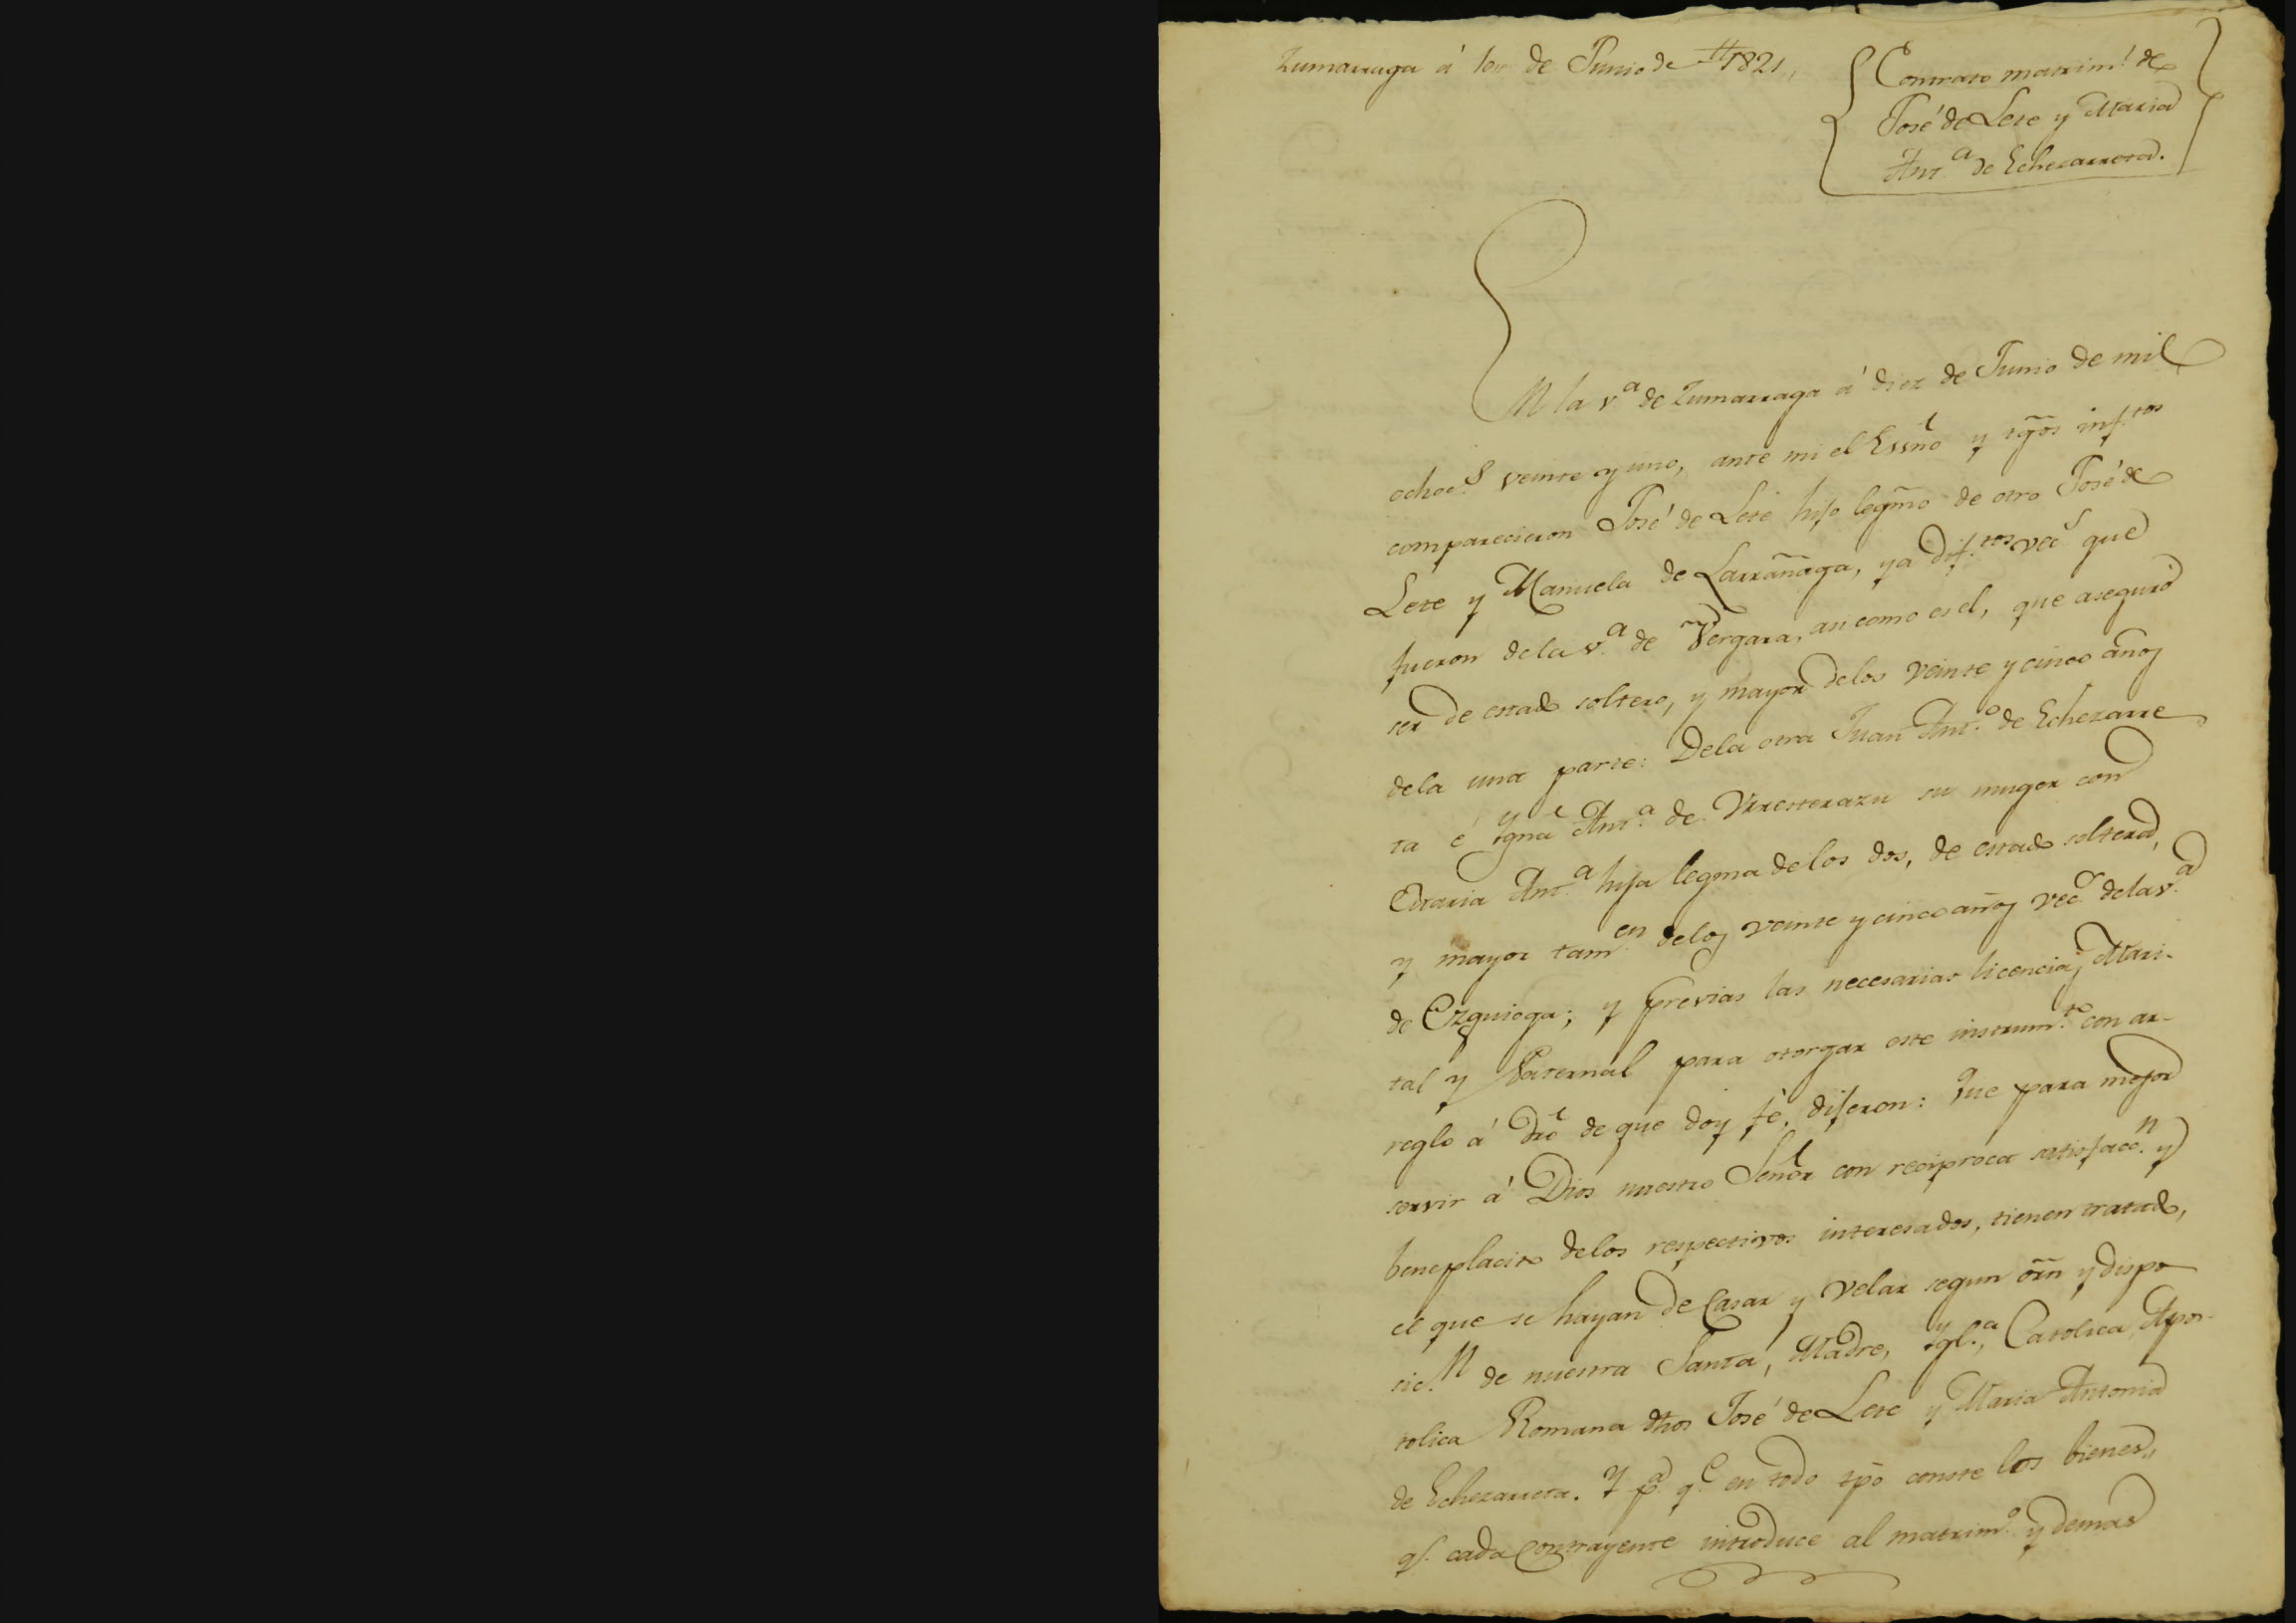 Zumarraga á 10 de Junio de 1821,,
Contrato matrim.l de
José de Lete y Maria
Ant.a de Echezarreta.
En la v.a de Zumarraga á diez de Junio de mil
ochoc.s veinte y uno, ante mi el Essño y tg̃os inf.tos
comparecieron José de Lete hijo legm̃o de otro José de
Lete y Manuela de Larrañaga, ya dif.tos vec.s que
fueron dela v.a de Vergara, asi como es el, que aseguró
ser de estado soltero, y mayor delos veinte y cinco años
dela una parte: Dela otra Juan Ant.o de Echezarre
ta é Ygna Ant.a de Urresterazu su muger con
Maria Ant.a hija legma delos dos, de estado soltera,
y mayor tam.en delos veinte y cinco años vec.s dela v.a
de Ezquioga; y previas las necesarias licencias Mari-
tal y Paternal para otorgar este instrum.to con ar-
reglo á dro de que doy fé, dijeron: Que para mejor
servir á Dios nuestro Señor con reciproca satisfacc.n y
beneplacito delos respectivos interesados, tienen tratado,
el que se hayan de Casar y Velar segun orñ y dispo
sic.n de nuestra Santa, Madre, Ygl.a, Catolica, Apos-
tolica Romana dhos José de Lete y Maria Antonia
de Echezarreta. Y p.a q.e en todo tpo conste los bienes,,
q.e cada Contrayente introduce al matrim.o y demas